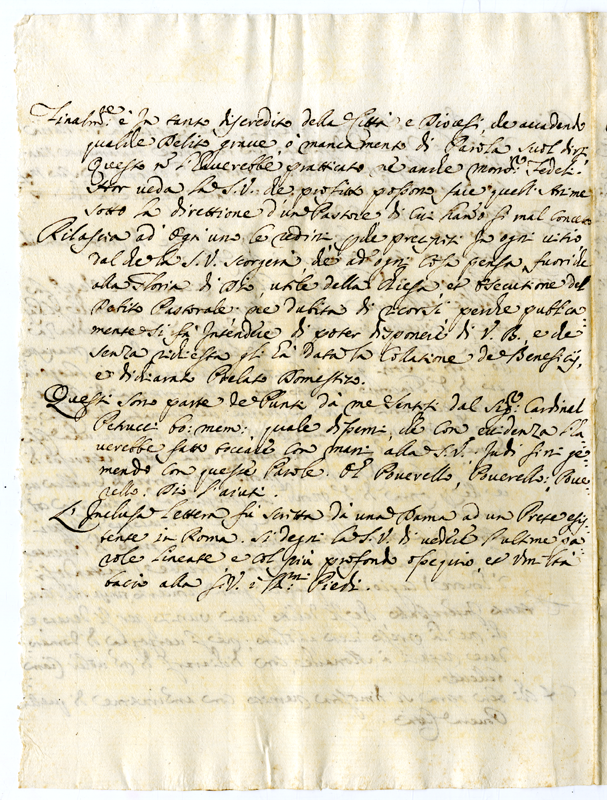 Finalm.te è In tanto discredito della Città e Diocesi, che accadendo
qualche Delito grave, ò mancamento di Parola suol dirsi
Questo nò l'haverebbe pratticato nè anche mons.r Fedeli.
Hor veda la S.V. che profitto possono fare quell'Anime
sotto la direttione d'un Pastore di Cui hanno sì mal Concetto
Rilascia ad' ogni uno le redini In ogni vitio
dal che la S.V. scorgerà che ad' ogni Cosa pensa, fuori che
alla Gloria di Dio, utile della Chiesa, et Essecutione del
Debito Pastorale; nè dubita di ricorsi, perche publica
mente si fà Intendere di poter disponere di V.B., e che
senza richiesta gli hà data la Collatione de Beneficij,
e dichiarato Prelato Domestico.
Questi sono parte de Punti dà me sentiti dal Sig.r Cardinal
Petrucci bo: mem: quale disse mi, che Con evidenza l'ha
verebbe fatto toccare Con mani alla S.V. Indi finì ge
mendo Con queste Parole. Oh Poverello, Poverello, Pove
rello: Dio l'aiuti.
L'Inclusa Lettera fù scritta dà una Dama ad un Prete esis
tente in Roma. Si degni la S.V. di vedere l'ultime pa
role lineate e col più profondo ossequio et Umiltà
bacio alla S.V. i SS.mi Piedi.